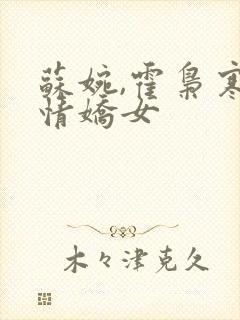 蘇婉,霍梟寒
情嬌女
木々津克久